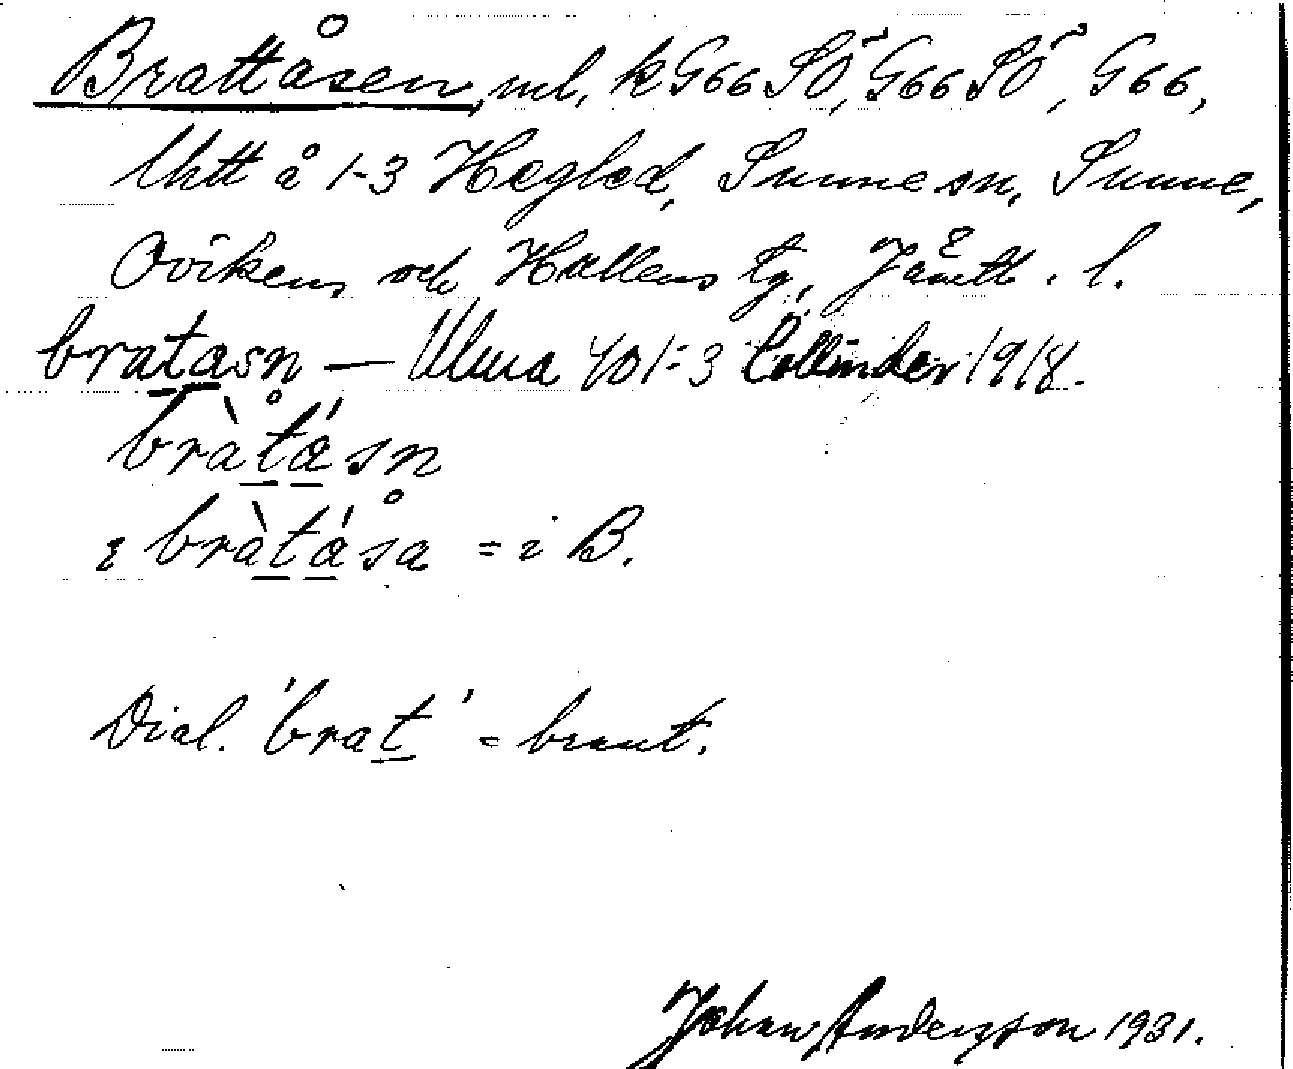 Brattåsen, ml, k G66 SÖ, G66 SÖ, G66,
Utt å 1-3 Hegled, Sunne sn, Sunne,
Ovikens och Hallens tg, Jämtl. l.
bratasn — Ulma 401:3 Collinder 1918.
bràtåsn
ɩ bràtåsa = i B.
Dial. 'brat' = brant.
Johan Andersson 1931.